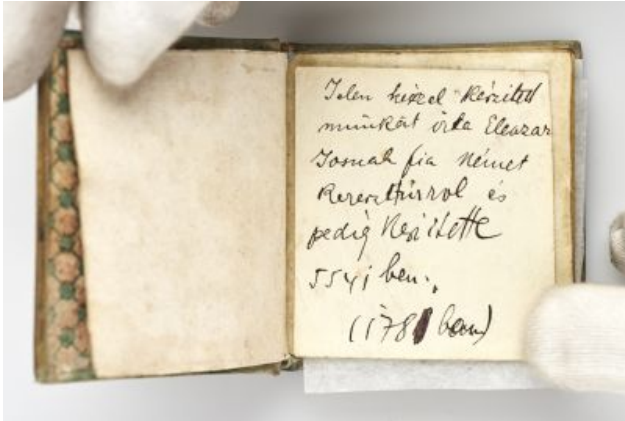 Jelen kézzel készített
munkát írta Eleazar
Josnak fia Német
Kereszturrol és
pedig készitette
5541 ben.,
(1781 ban)